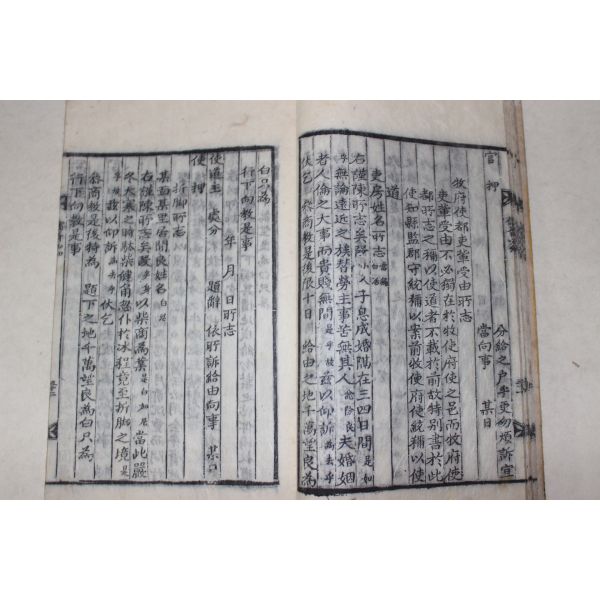 分給之戶乎更勿煩訴宜
當向事 某日
官 押
牧府使都吏輩受由所志
吏輩受由不必獨在於牧使府使之邑而牧府使
都所志之稱以使道者不載於前故特別書於此
使知縣監郡守統稱以案前牧使府使統稱以使
道
吏房姓名所志
右謹陳所志矣段 小人子息成婚隔在三四日間是如
乎無論遠近之族替勞主事苦無其人 夫婚姻
者人倫之大事而貴賤無間是乎 玆以仰訴為去乎
伏乞 商教是後限十日 給由之地千萬望良為
白只為
行下向教是事
年 月 日所志
使道主 處分 題辭 依所訴給由向事
使 押
折脚所志
某面某里居閑良姓名
右謹陳所志矣段 以柴商為業是 當此嚴
冬大寒之時 仆於冰程竟至折脚之境是
乎 玆以仰訴為去乎 伏乞
商教是後特為 題下之地千萬望良為白只為
行下向教是事